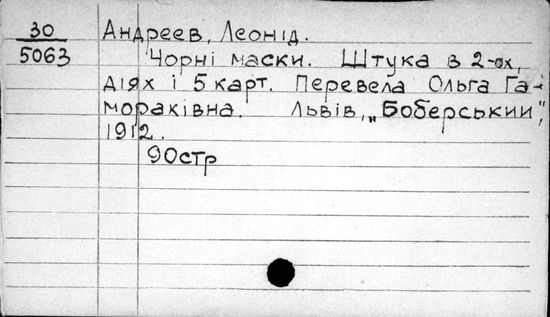 30
5063
Андреев, Леонід.
Чорні маски. Штука в 2-ох,
діях і 5 карт. Перевела Ольга Га-
мораківна. Львів, „Боберський",
1912.
90стр